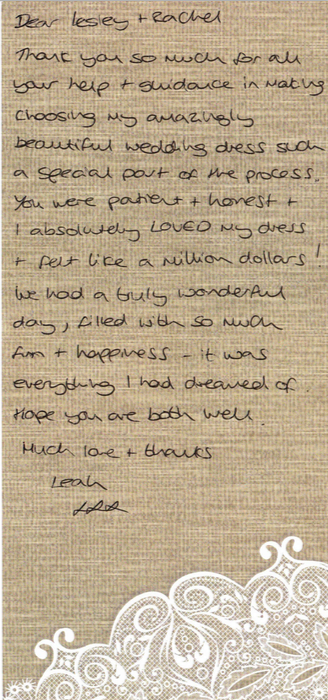 Dear Lesley + Rachel
Thank you so much for all
your help + guidance in making
choosing my amazingly
beautiful wedding dress such
a special part of the process.
You were patient + honest +
I absolutely LOVED my dress
+ felt like a million dollars!
We had a truly wonderful
day, filled with so much
fun + happiness - it was
everything I had dreamed of.
Hope you are both well.
Much love + thanks
Leah